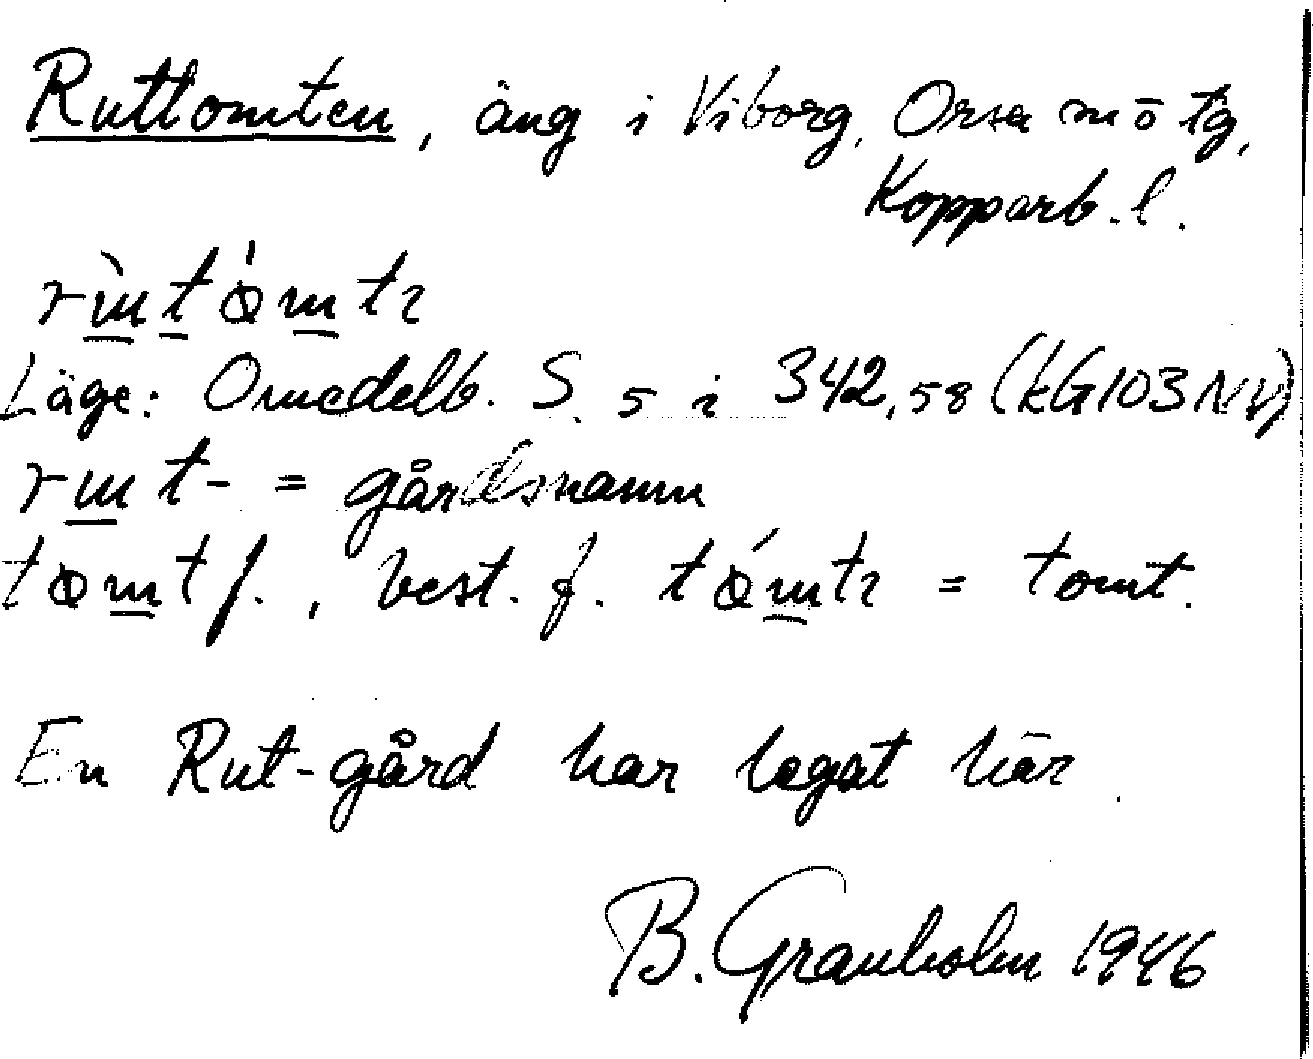 Ruttomten, äng i Viborg, Orsa m o tg,
Kopparb. l.
Läge: Omedelb. S. 5 i 342,58 (kG103NV)
t- = gårdsnamn
f., best. f. = tomt.
En Rut-gård har legat här.
B. Granholm 1946